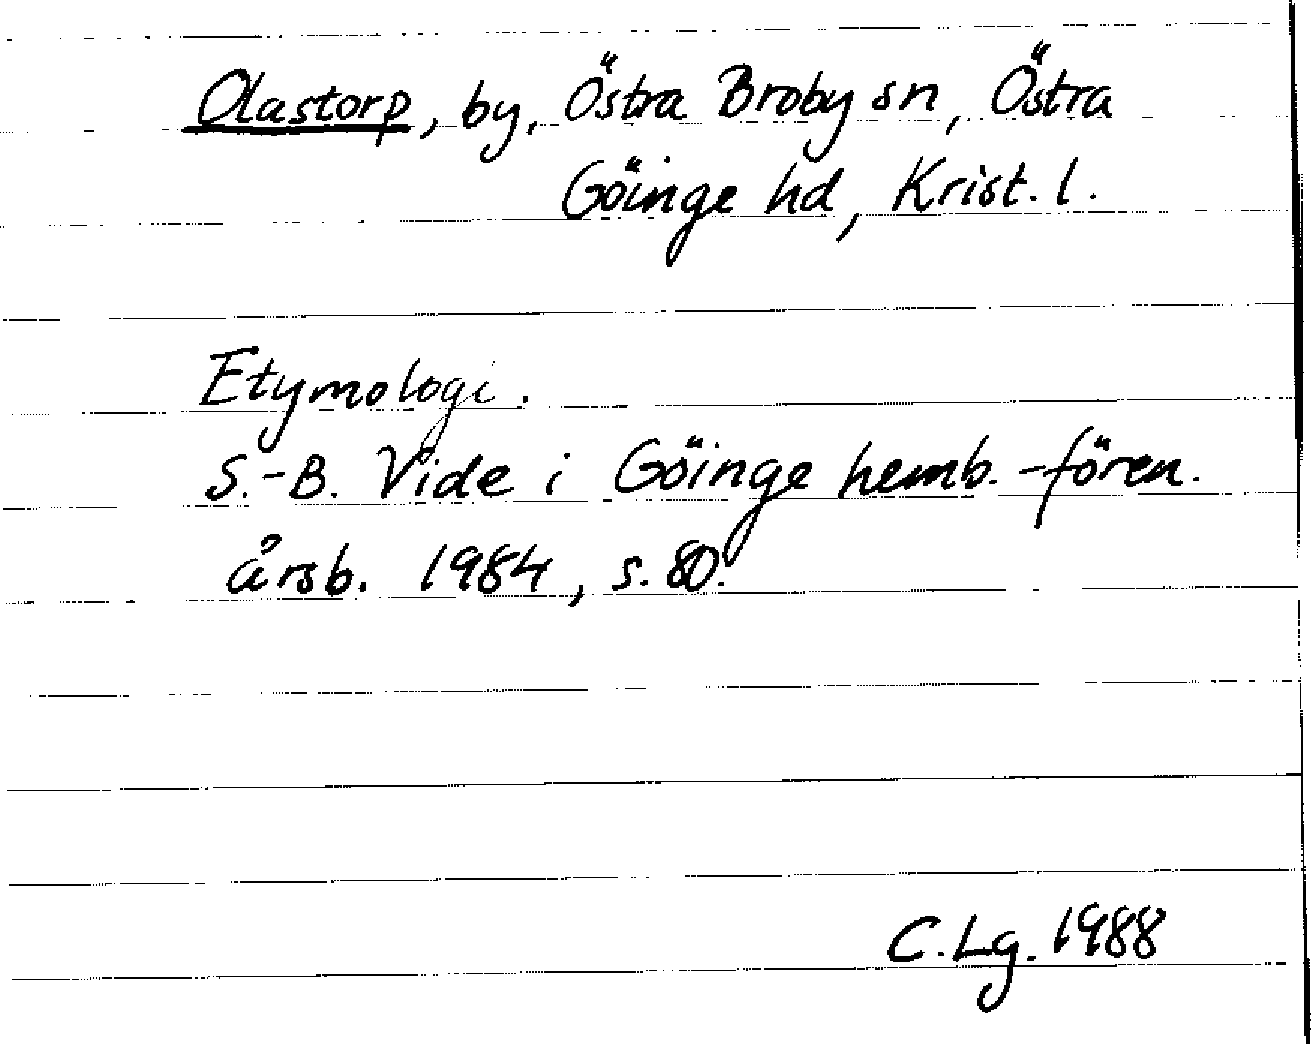 Olastorp, by, Östra Broby sn, Östra
Göinge hd, Krist. l.
Etymologi.
S.-B. Vide i Göinge hemb.-fören.
årsb. 1984, s. 80.
C.Lg. 1988